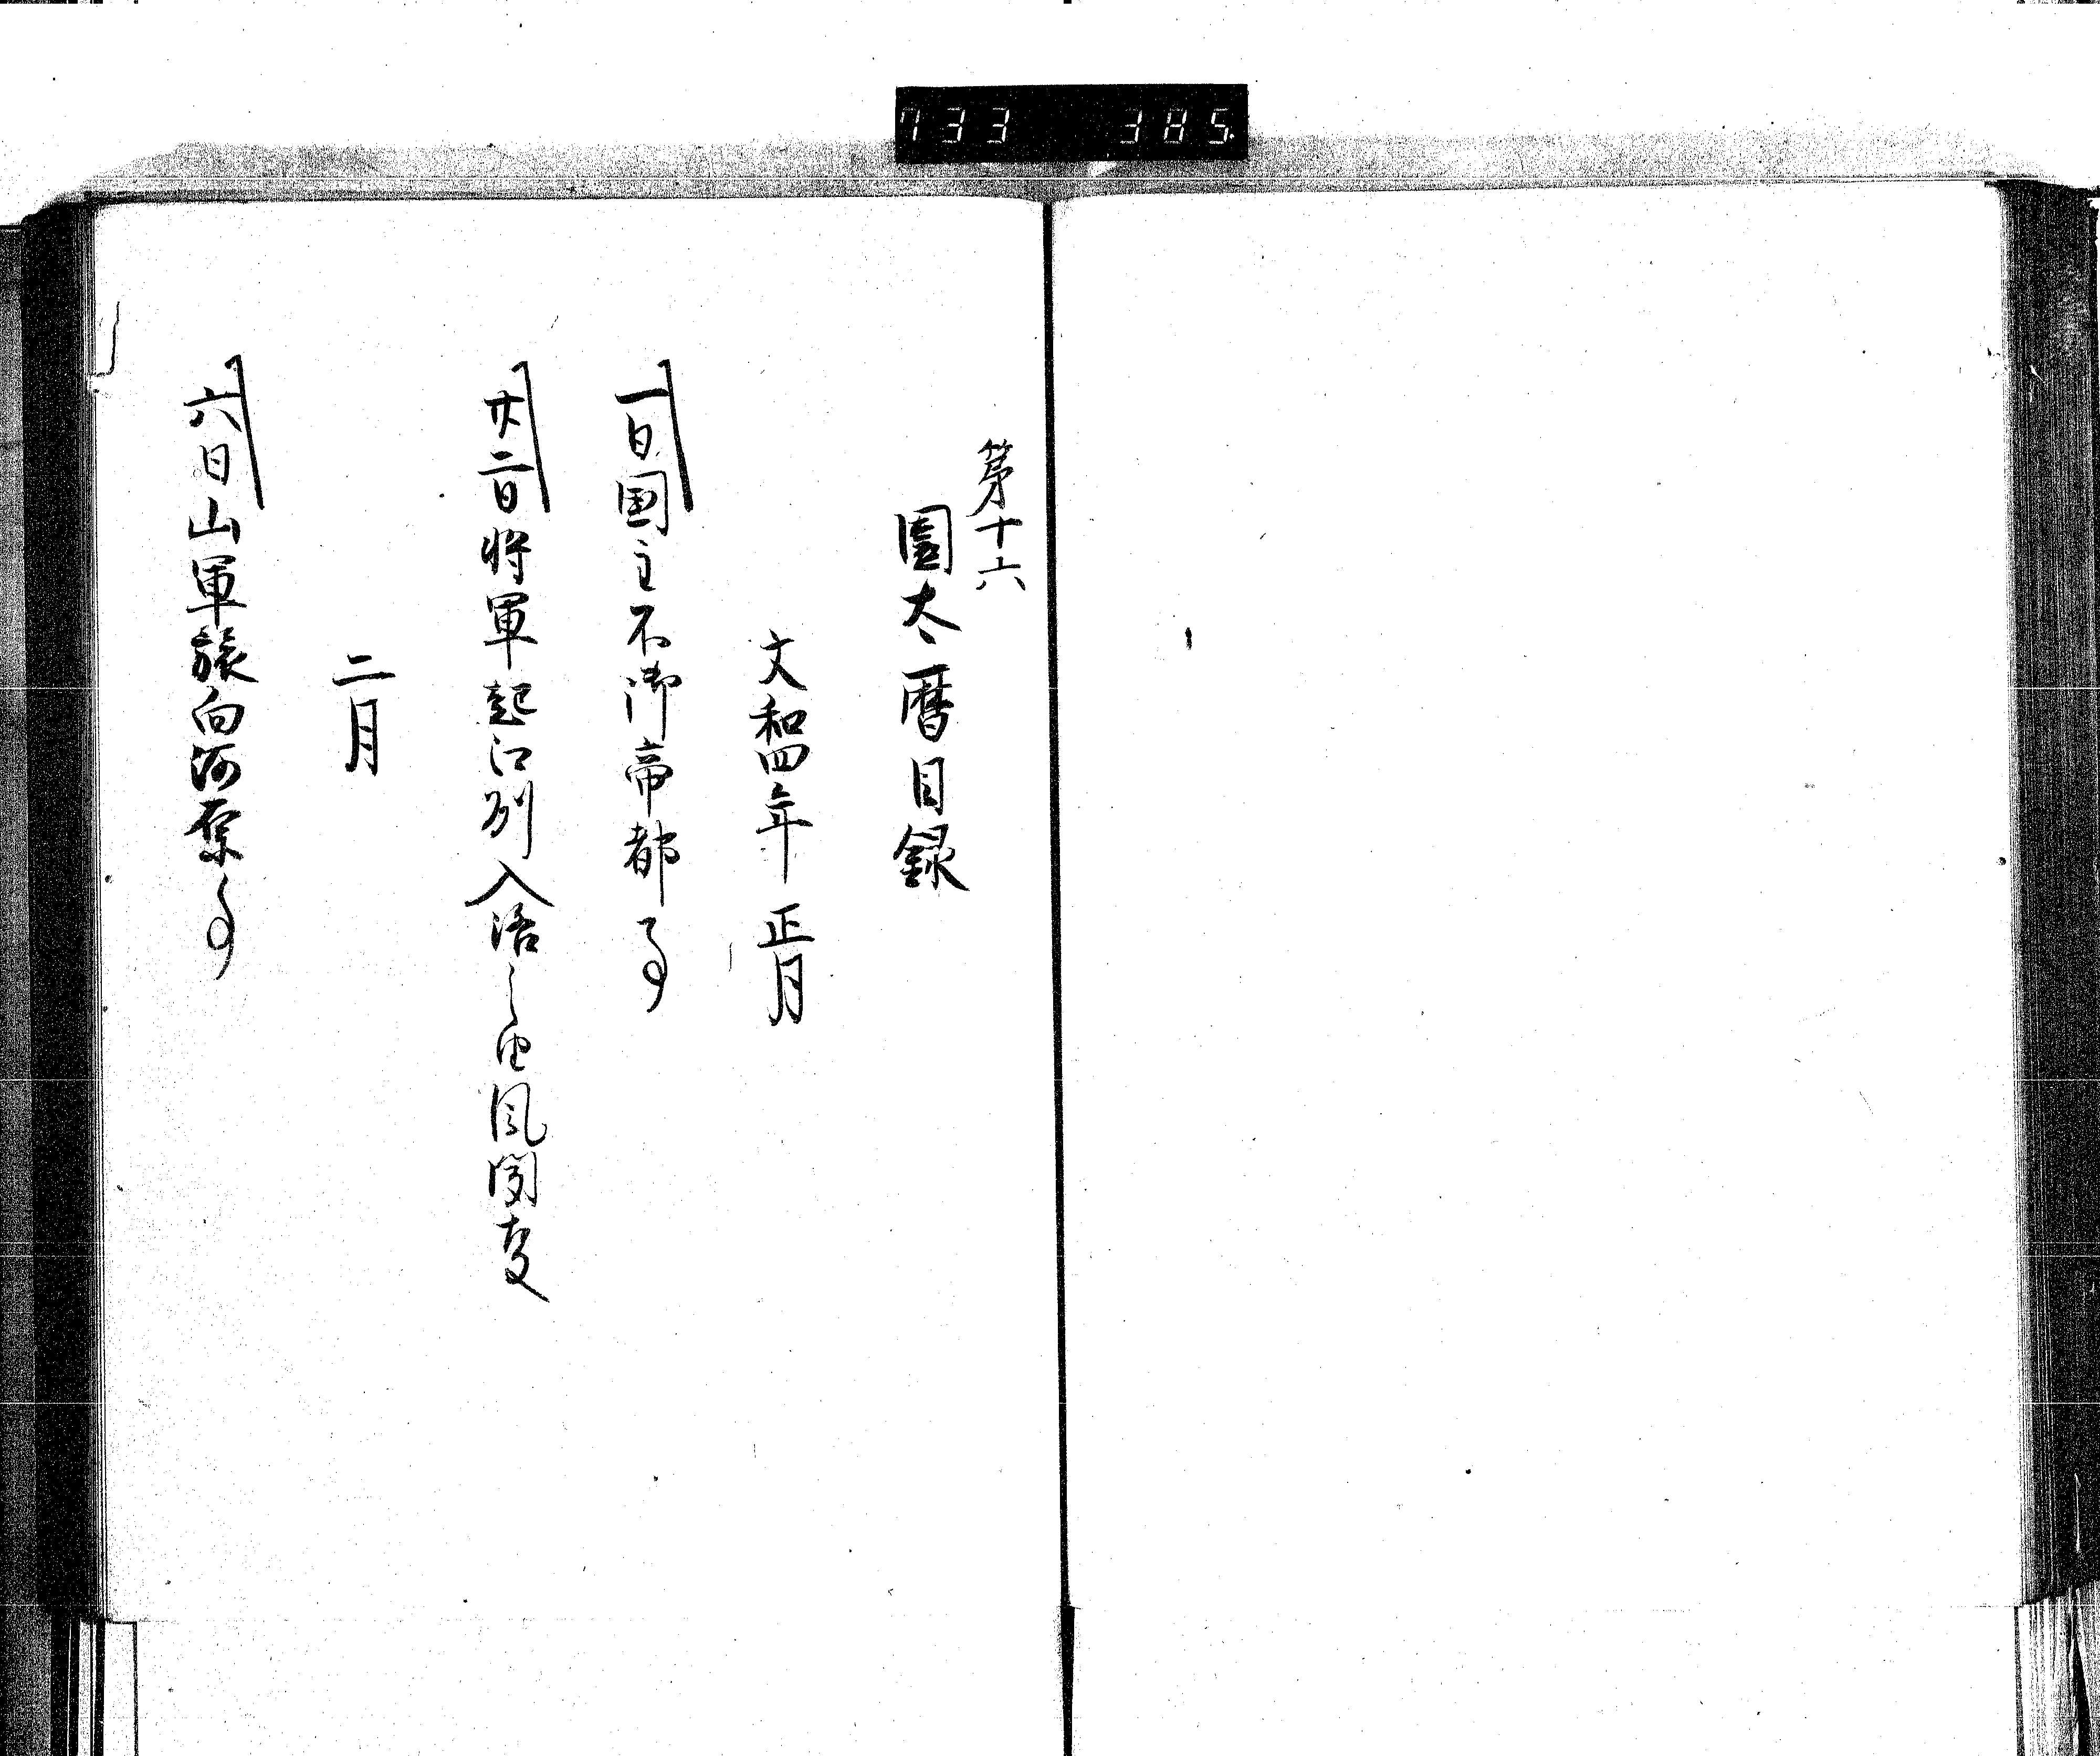 733 385
第十六
園太暦目録
文和四年正月
一日国主不御帝都事
廿二日将軍起江州入洛之由風聞事
二月
六日山軍旅向河原事